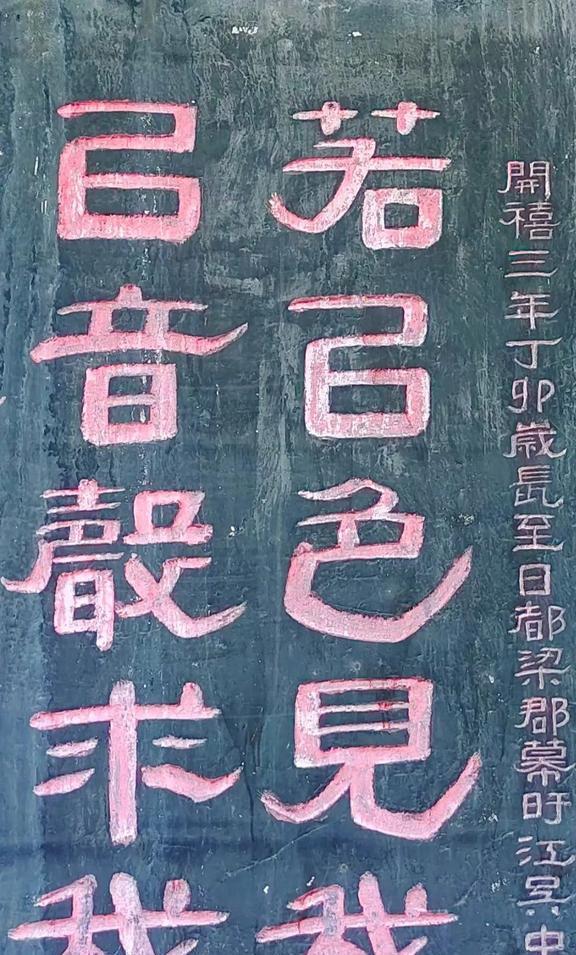 開禧三年丁卯歲長至日都梁郡幕旴江吳中
若㠯色見我
㠯音聲求我